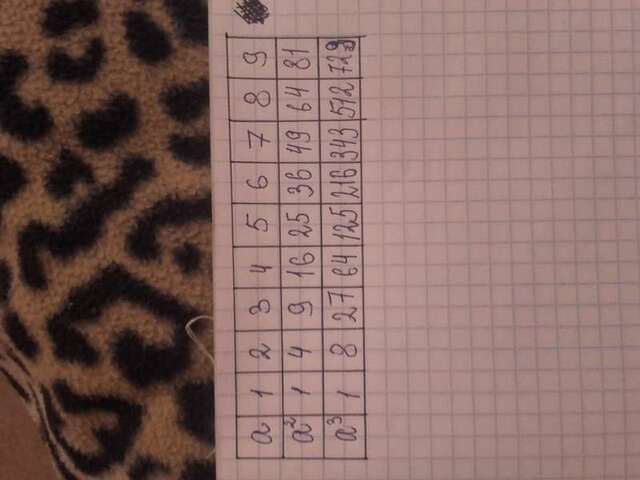 a 1 2 3 4 5 6 7 8 9
a² 1 4 9 16 25 36 49 64 81
a³ 1 8 27 64 125 216 343 512 729